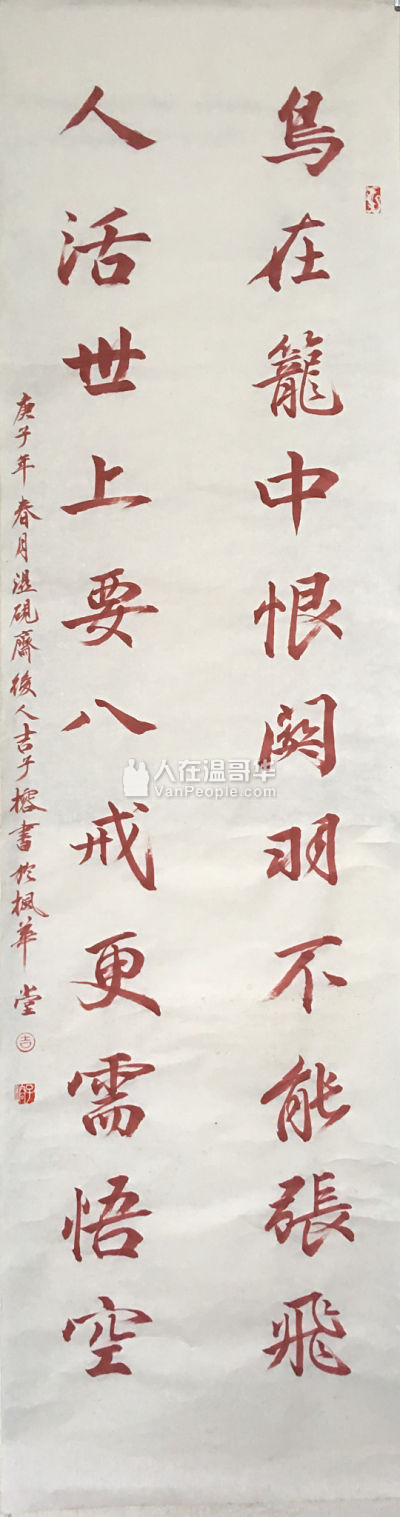 鳥在籠中恨關羽不能張飛
人活世上要八戒更需悟空
庚子年春月温硯齋後人吉子榕書於楓華堂
吉
人在温哥华
VanPeople.com